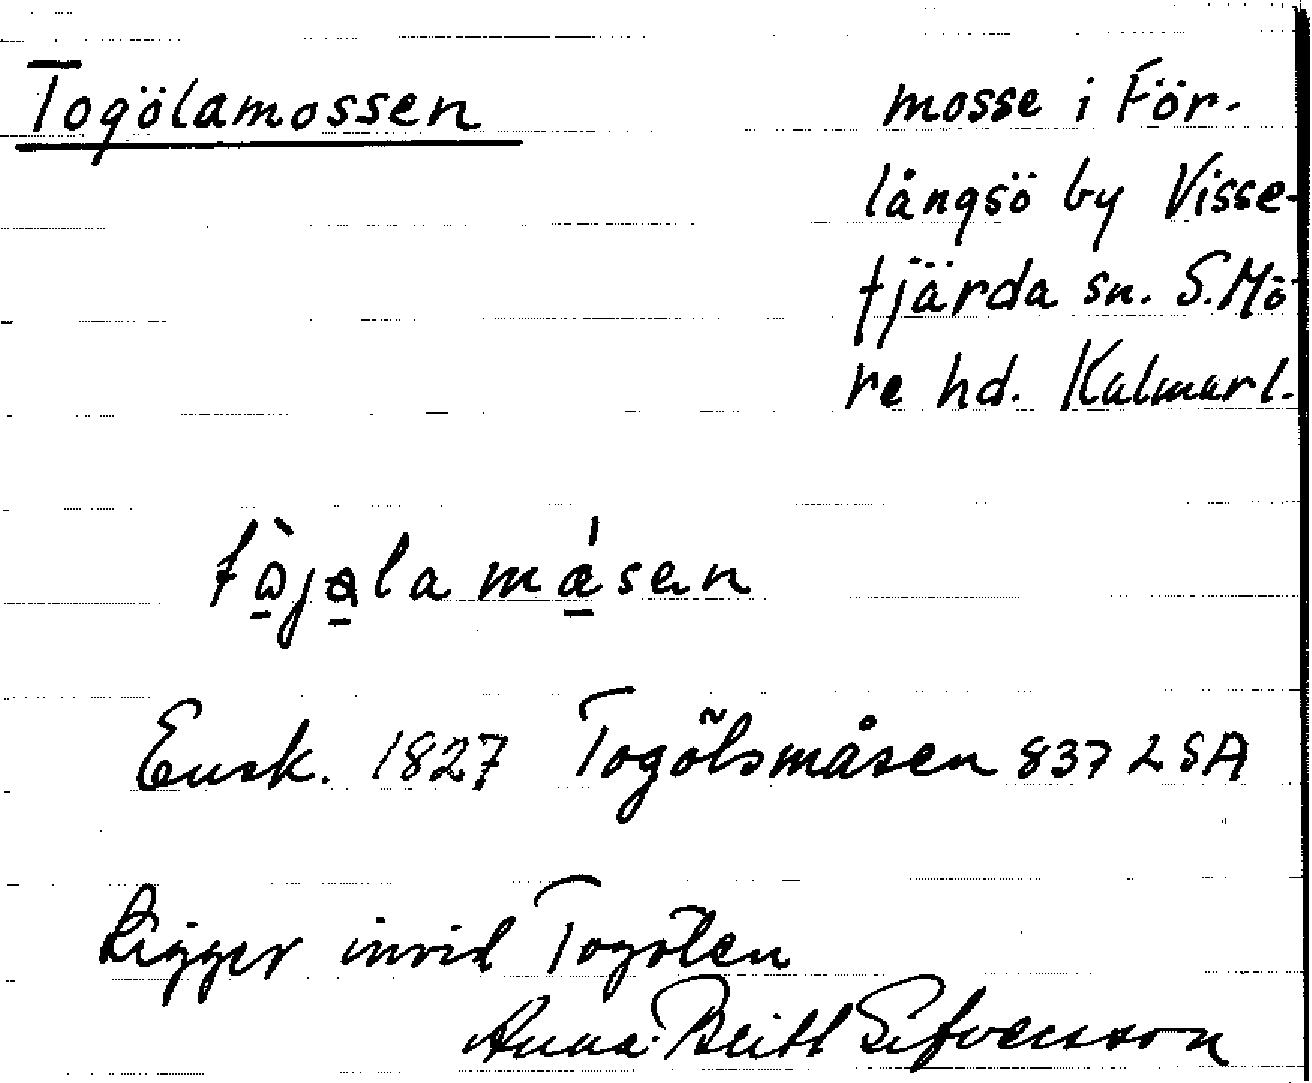 Togölamossen
mosse i För-
långsö by Visse-
fjärda sn. S. Mö-
re hd. Kalmarl.
Ensk. 1827 Togölsmåsen 837 LSA
Ligger invid Togölen
Anna-Britt Sefvensson